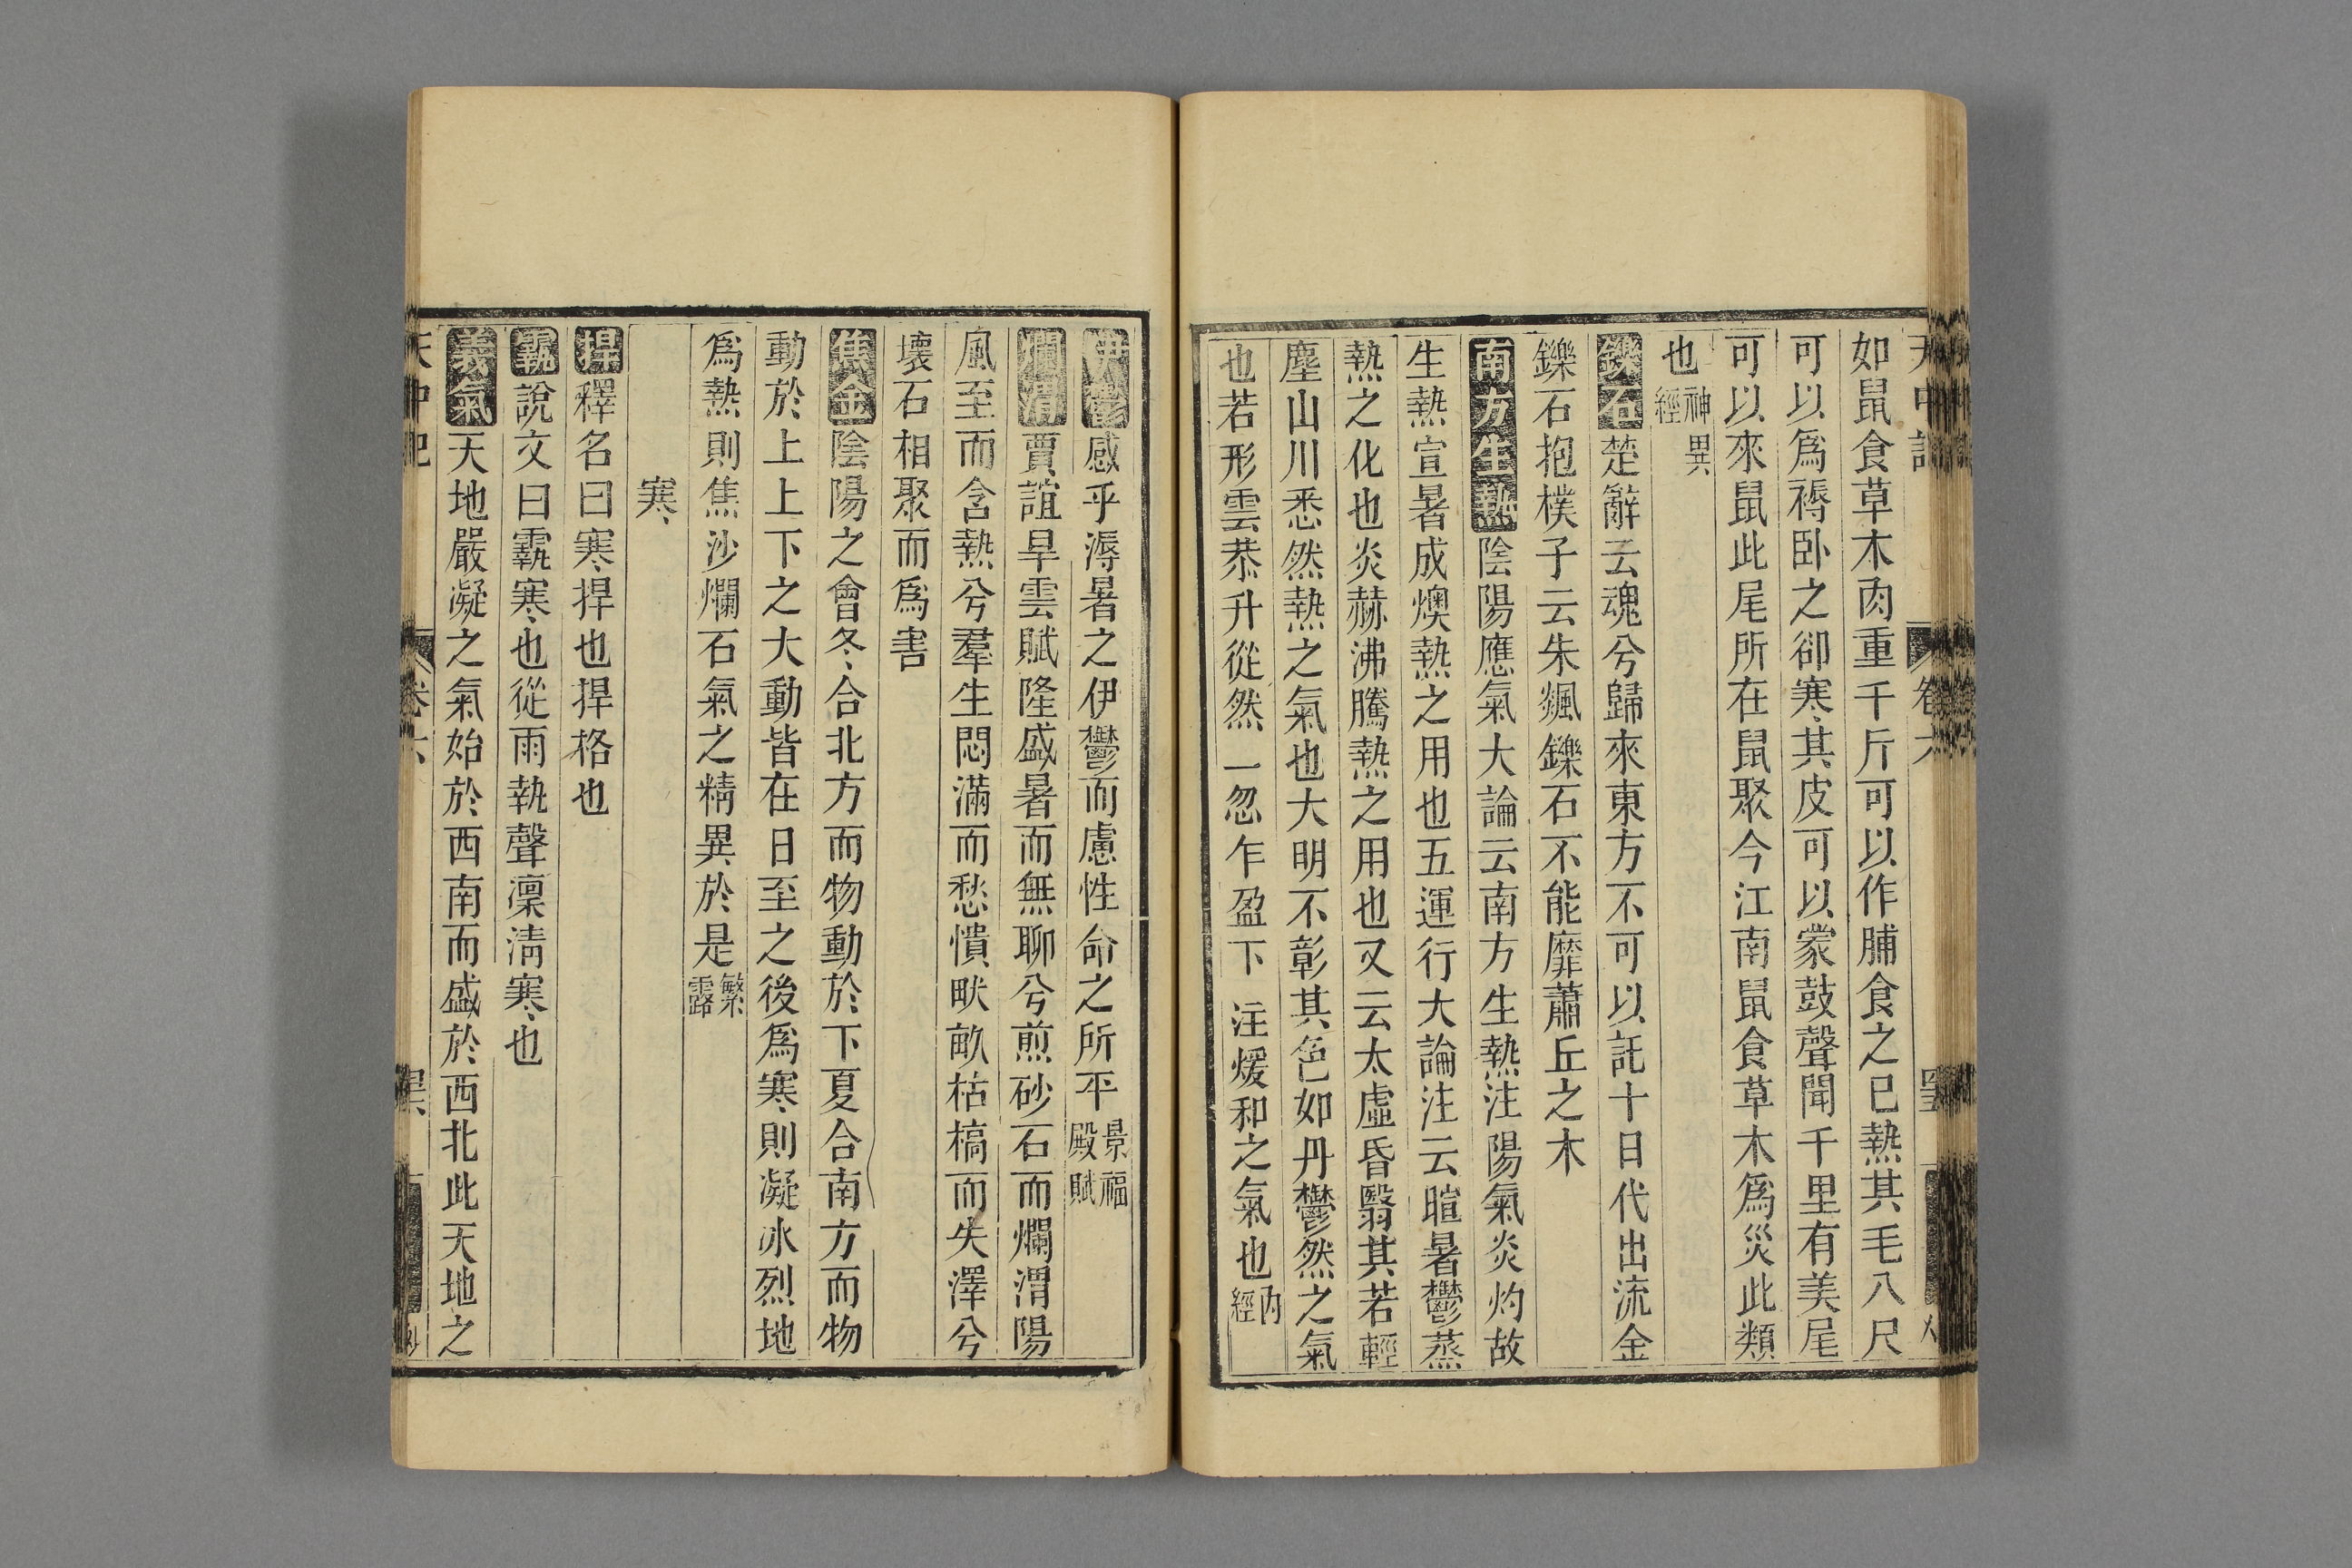 如鼠食草木肉重千斤可以作脯食之已熱其毛八尺
可以爲褥卧之卻寒其皮可以蒙鼓聲聞千里有美尾
可以來鼠此尾所在鼠聚今江南鼠食草木爲災此類
也神異經
鑠石楚辭云魂兮歸來東方不可以託十日代出流金
鑠石抱樸子云朱飈鑠石不能靡蕭丘之木
南方生熱陰陽應氣大論云南方生熱注陽氣炎灼故
生熱宣暑成燠熱之用也五運行大論注云暄暑鬱蒸
熱之化也炎赫沸騰熱之用也又云太虛昏翳其若輕
塵山川悉然熱之氣也大明不彰其色如丹鬱然之氣
也若形雲㳟升從然一忽乍盈下注煖和之氣也內經
伊鬱感乎溽暑之伊鬱而慮性命之所平景福殿賦
爛渭賈誼旱雲賦隆盛暑而無聊兮煎砂石而爛渭陽
風至而含熱兮羣生悶滿而愁憒畎畝枯槁而失澤兮
壞石相聚而爲害
焦金陰陽之會冬合北方而物動於下夏合南方而物
動於上上下之大動皆在日至之後爲寒則凝冰烈地
爲熱則焦沙爛石氣之精異於是繁露
寒
捍釋名曰寒捍也捍格也
䨴說文曰䨴寒也從雨執聲凜淸寒也
義氣天地嚴凝之氣始於西南而盛於西北此天地之
天中記
卷六